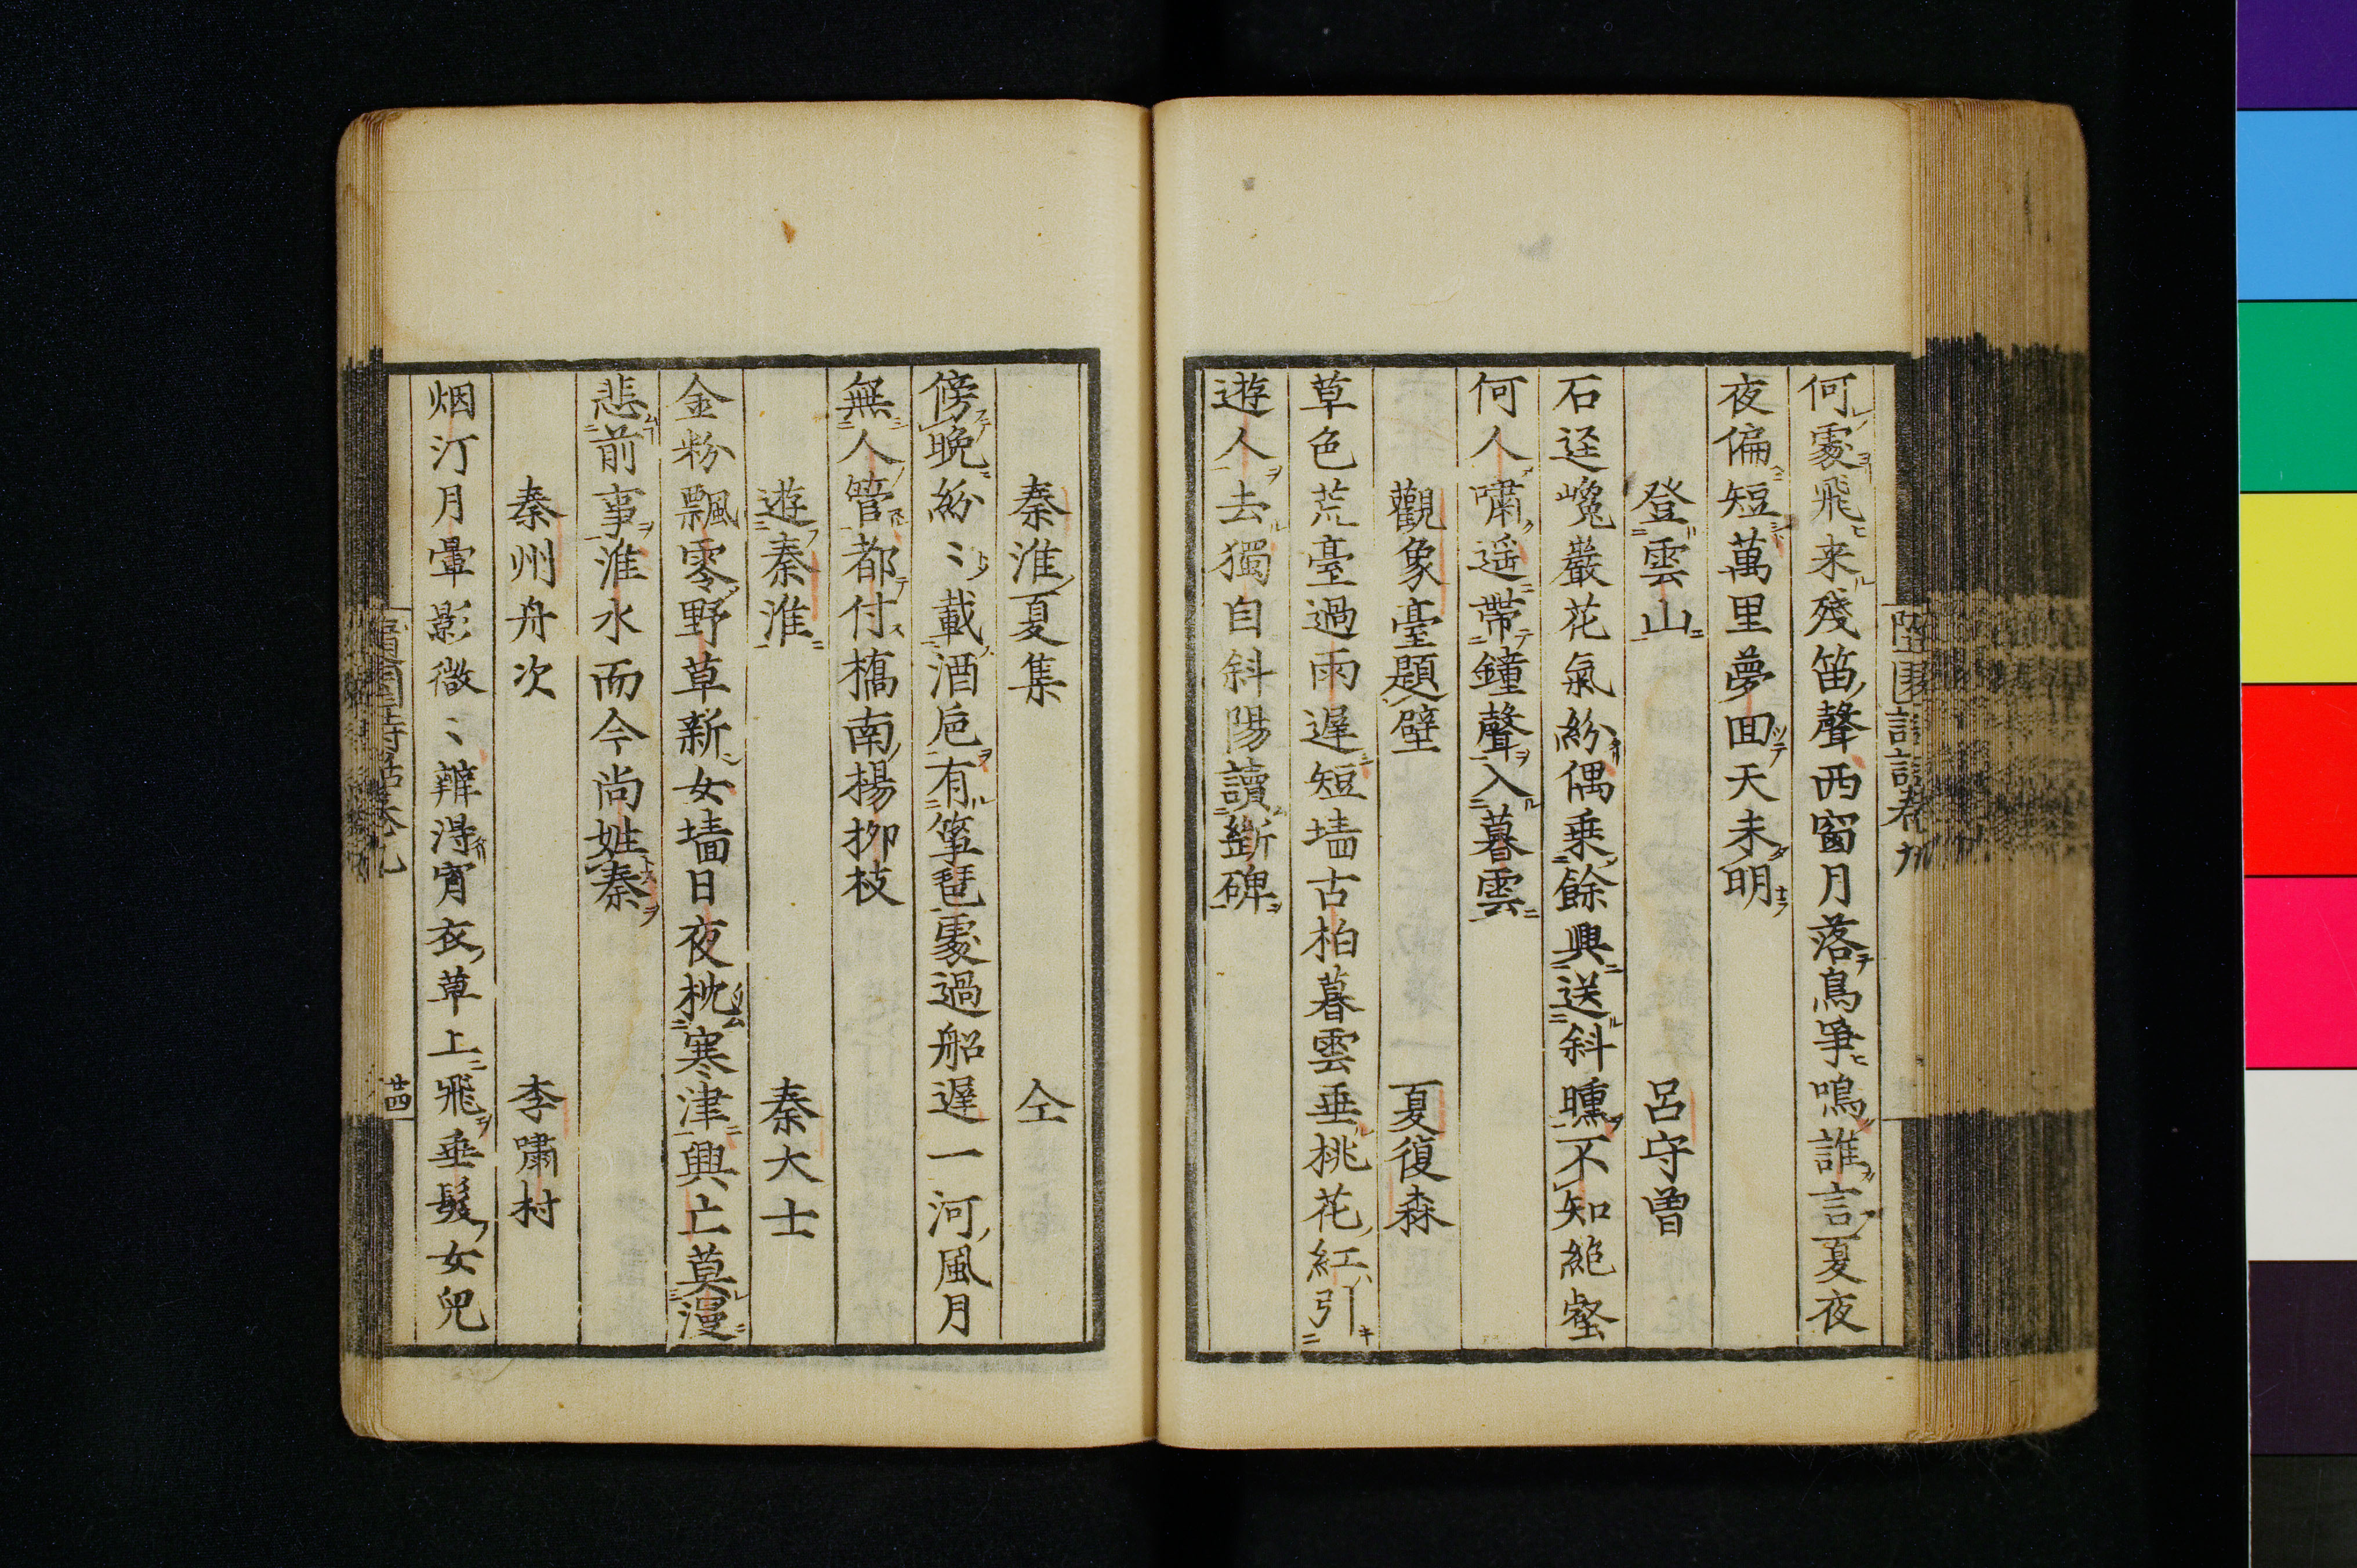 何處飛来殘笛聲西窗月落鳥爭鳴誰言夏夜
夜偏短萬里夢回天未明
登雲山 呂守曽
石迳巉巖花氣紛偶乗餘興送斜曛不知絶壑
何人嘯遥帶鐘聲入暮雲
觀象臺題壁 夏復森
草色荒臺過雨遲短墻古柏暮雲垂桃花紅引
遊人去獨自斜陽讀斷碑
秦淮夏集 仝
傍晩紛〻載酒巵有箏琶處過船遲一河風月
無人管都付橋南楊柳枝
遊秦淮 秦大士
金粉飄零野草新女墻日夜枕寒津興亡莫漫
悲前事淮水而今尚姓秦
秦州舟次 李嘯村
烟汀月暈影微〻辨得宵衣草上飛垂髮女兒
隨園詩話卷九
廿四